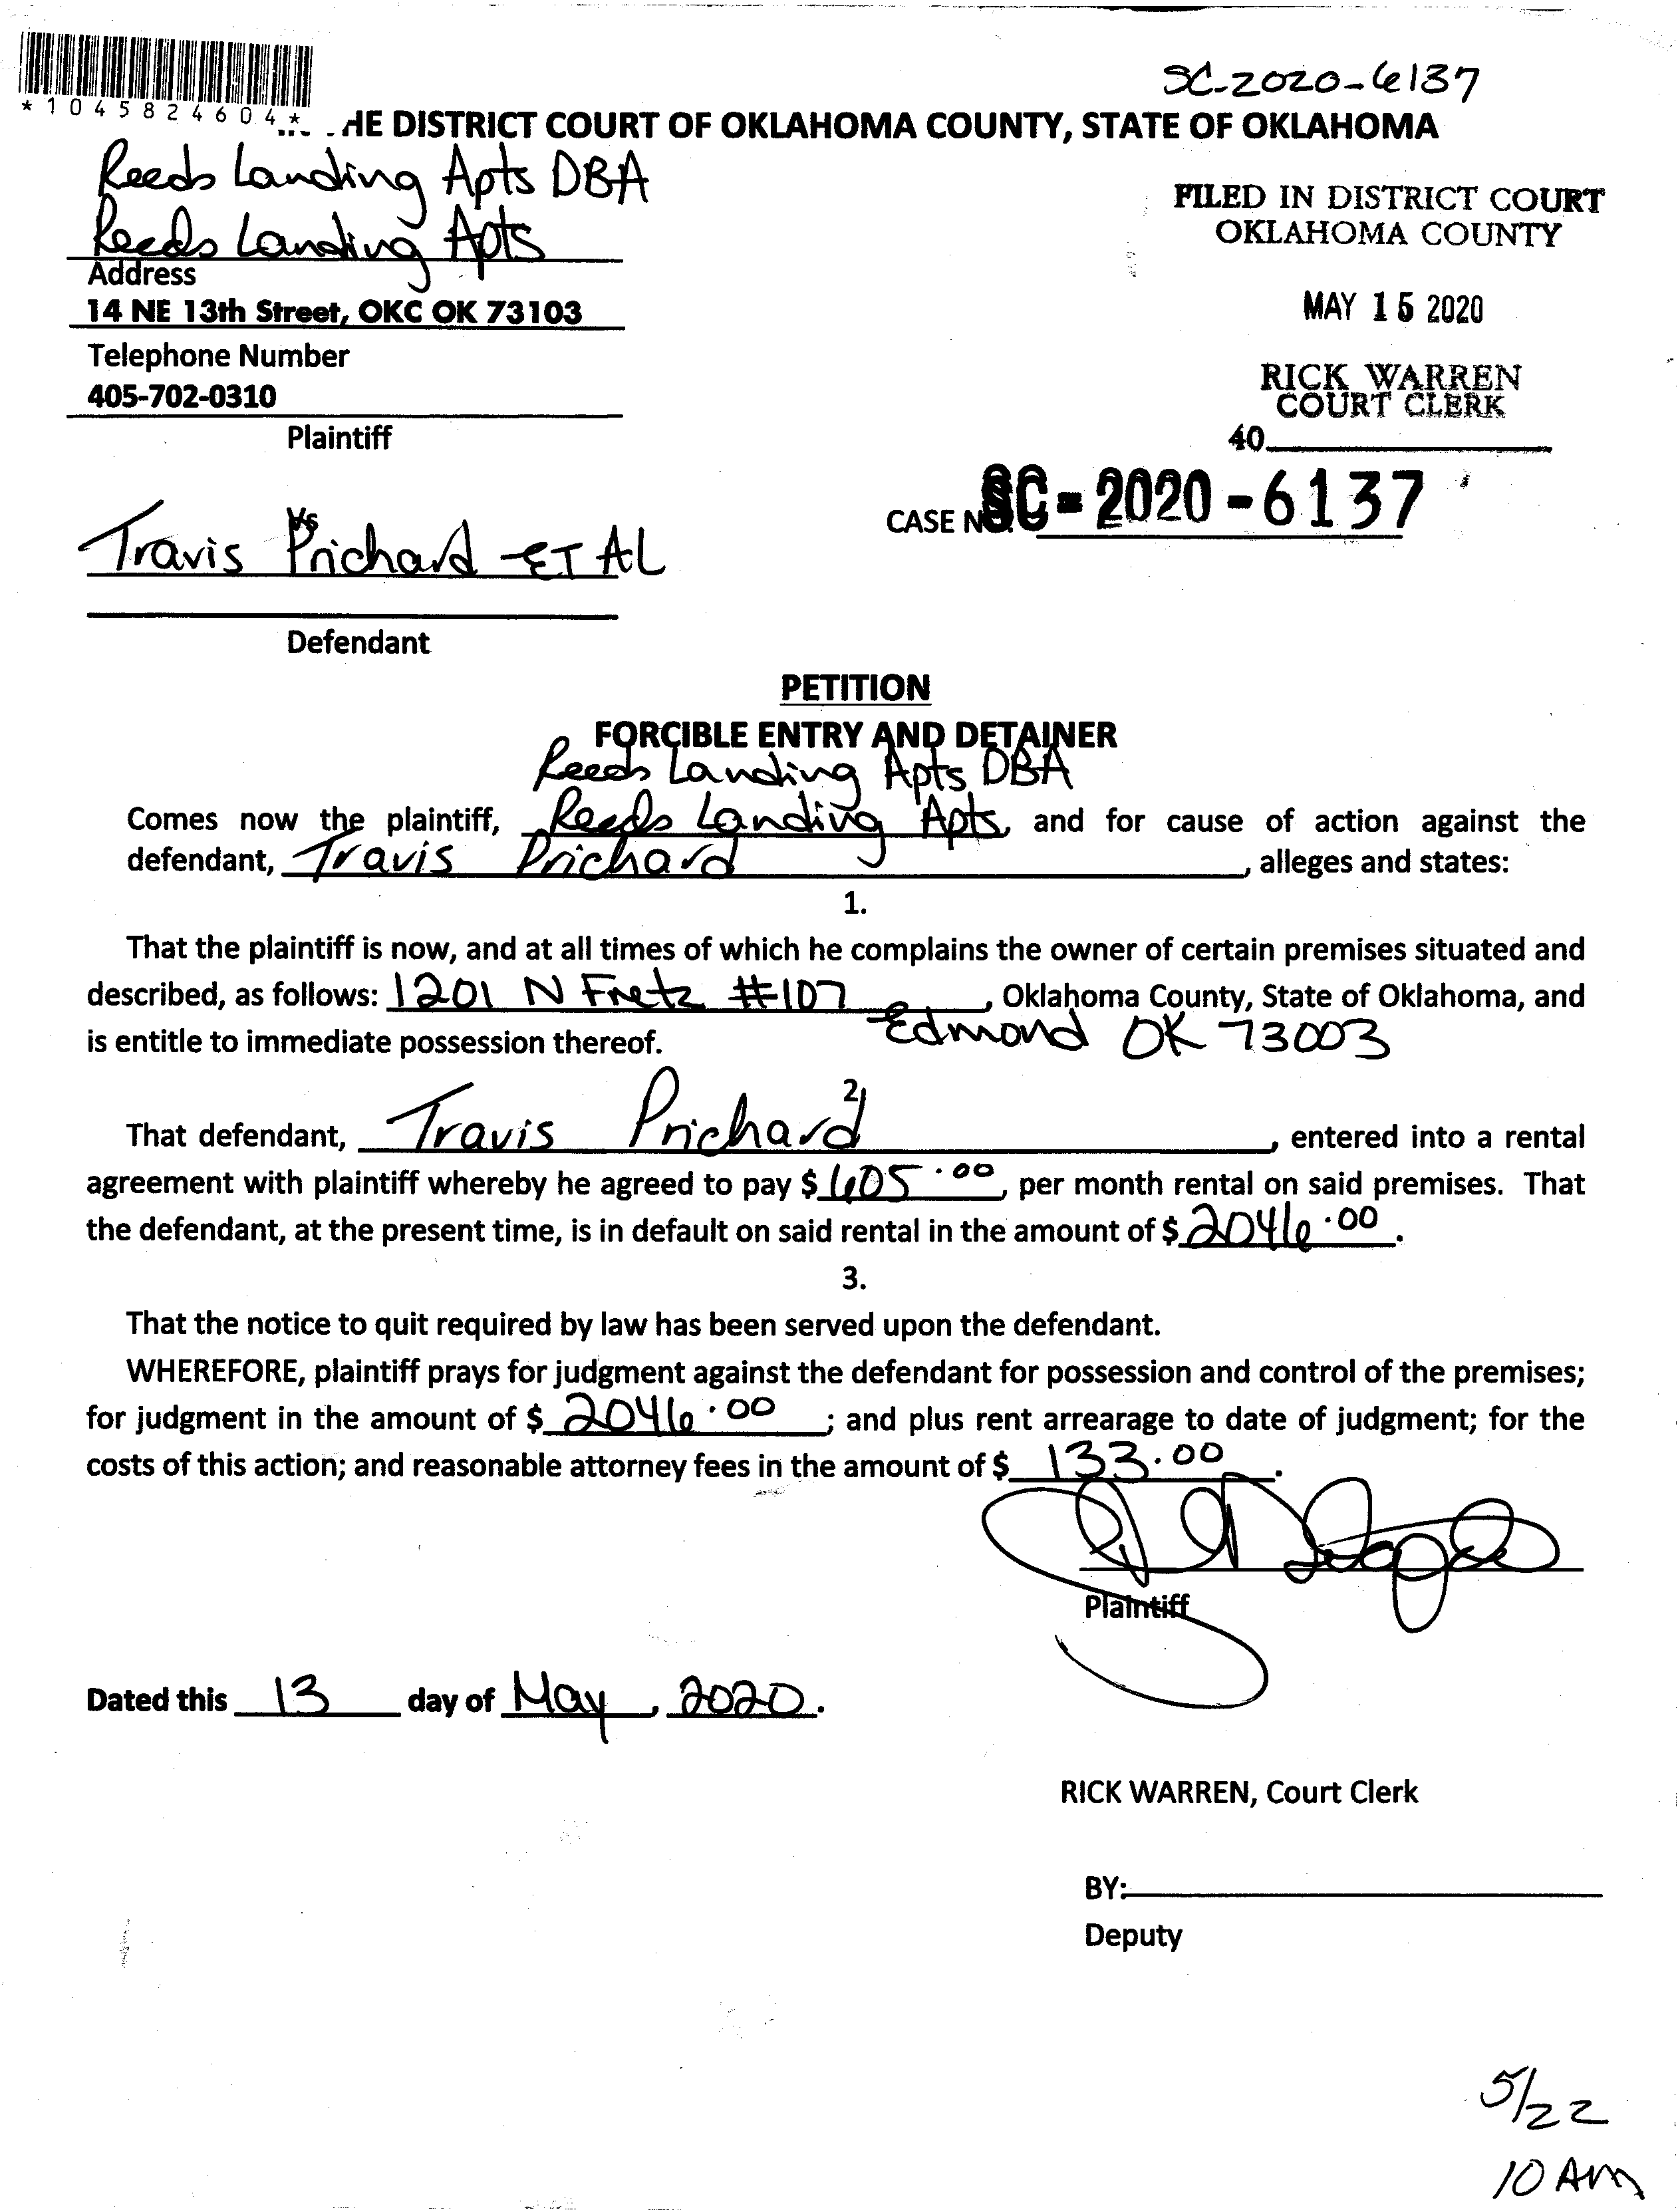 SC-2020-6137
*1045824604*
HE DISTRICT COURT OF OKLAHOMA COUNTY, STATE OF OKLAHOMA
Reeds Landing Apts DBA
Reeds Landing Apts
Address
14 NE 13th Street, OKC OK 73103
Telephone Number
405-702-0310
Plaintiff
FILED IN DISTRICT COURT
OKLAHOMA COUNTY
MAY 15 2020
RICK WARREN
COURT CLERK
40
CASE NO. SC-2020-6137
Vs
Travis Prichard ET AL
Defendant
PETITION
FORCIBLE ENTRY AND DETAINER
Reeds Landing Apts DBA
Comes now the plaintiff, Reeds Landing Apts, and for cause of action against the
defendant, Travis Prichard, alleges and states:
1.
That the plaintiff is now, and at all times of which he complains the owner of certain premises situated and
described, as follows: 1201 N Fretz #107, Oklahoma County, State of Oklahoma, and
Edmond OK 73003
is entitle to immediate possession thereof.
2.
That defendant, Travis Prichard, entered into a rental
agreement with plaintiff whereby he agreed to pay $ 605.00, per month rental on said premises. That
the defendant, at the present time, is in default on said rental in the amount of $ 2046.00.
3.
That the notice to quit required by law has been served upon the defendant.
WHEREFORE, plaintiff prays for judgment against the defendant for possession and control of the premises;
for judgment in the amount of $ 2046.00; and plus rent arrearage to date of judgment; for the
costs of this action; and reasonable attorney fees in the amount of $ 133.00.
Plaintiff
Dated this 13 day of May, 2020.
RICK WARREN, Court Clerk
BY:
Deputy
5/22
10 AM